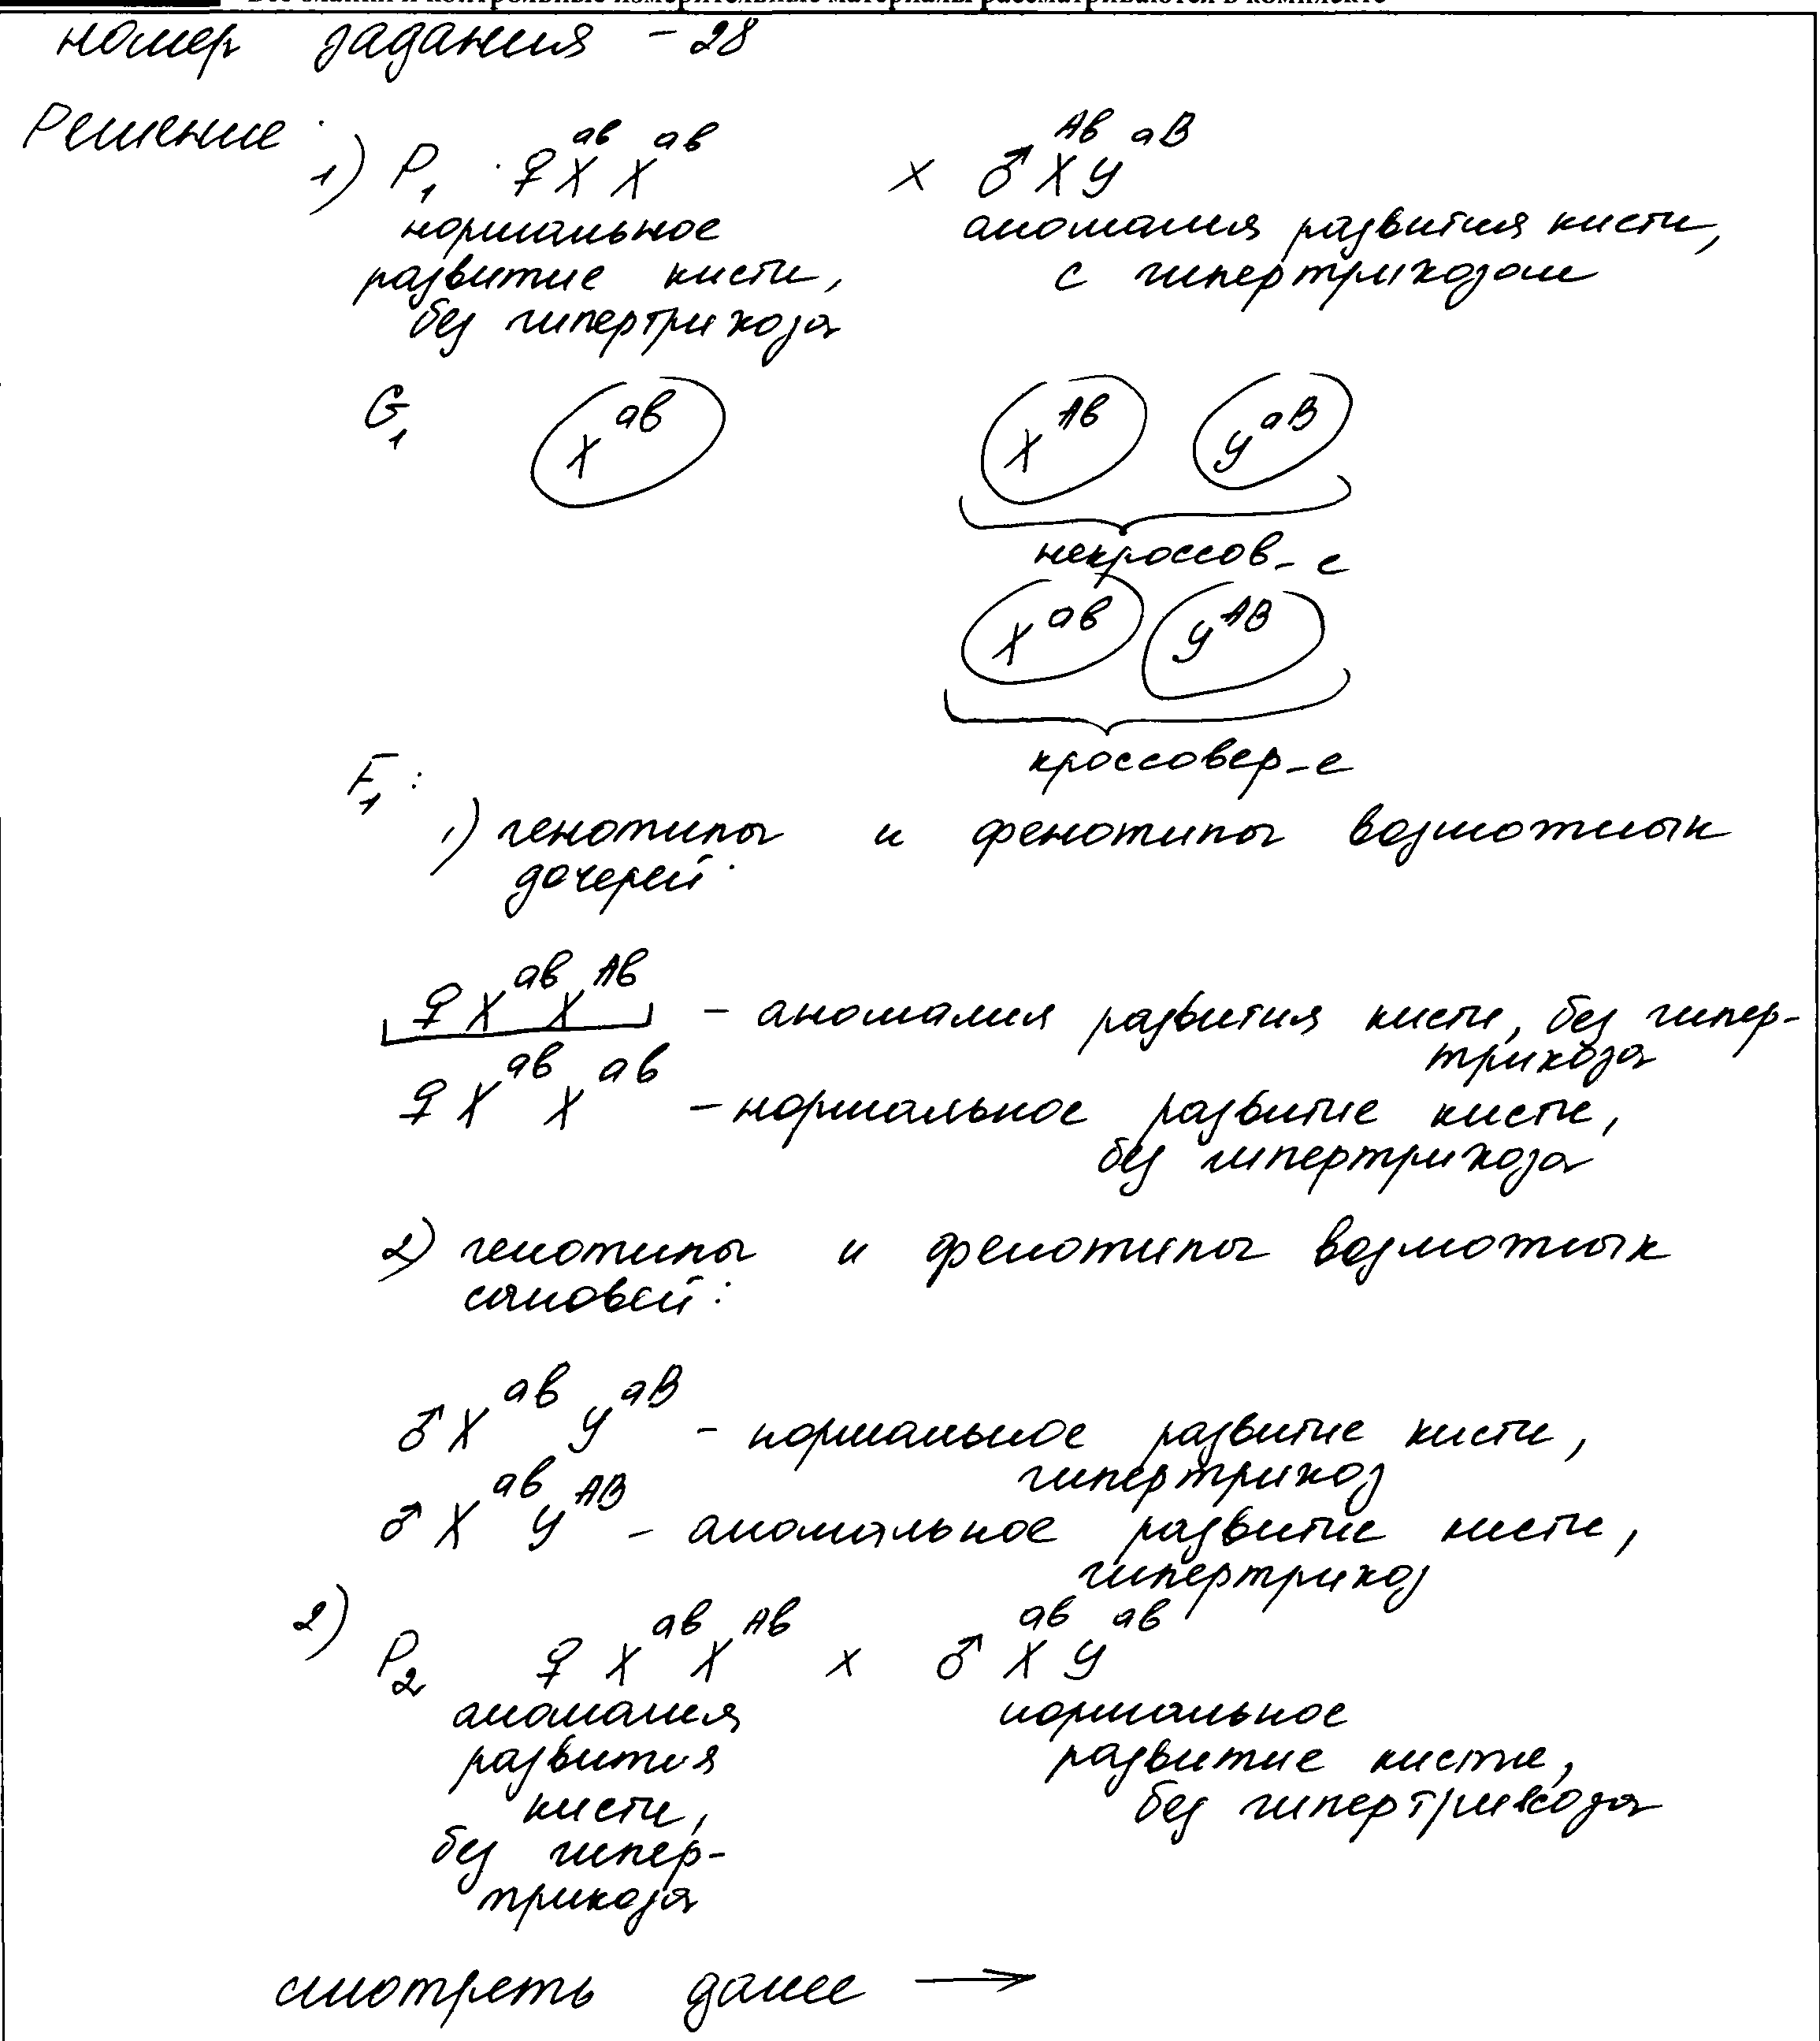 Все бланки и контрольные измерительные материалы рассматриваются в комплекте
номер задания - 28
Решение:
1) P₁ ♀XᵃᵇXᵃᵇ × ♂XᴬᵇYᵃᴮ
нормальное аномалия развития кисти,
развитие кисти, с гипертрихозом
без гипертрихоза
G₁ Xᵃᵇ Xᴬᵇ Yᵃᴮ
некроссов-е
Xᵃᵇ Yᴬᴮ
кроссовер-е
F₁:
1) генотипы и фенотипы возможных
дочерей:
♀XᵃᵇXᴬᵇ - аномалия развития кисти, без гипер-
трихоза
♀XᵃᵇXᵃᵇ - нормальное развитие кисти,
без гипертрихоза
2) генотипы и фенотипы возможных
сыновей:
♂XᵃᵇYᵃᴮ - нормальное развитие кисти,
гипертрихоз
♂XᵃᵇYᴬᴮ - аномальное развитие кисти,
гипертрихоз
2)
P₂ ♀XᵃᵇXᴬᵇ × ♂XᵃᵇYᵃᵇ
аномалия нормальное
развития развитие кисти,
кисти, без гипертрихоза
без гипер-
трихоза
смотреть далее →